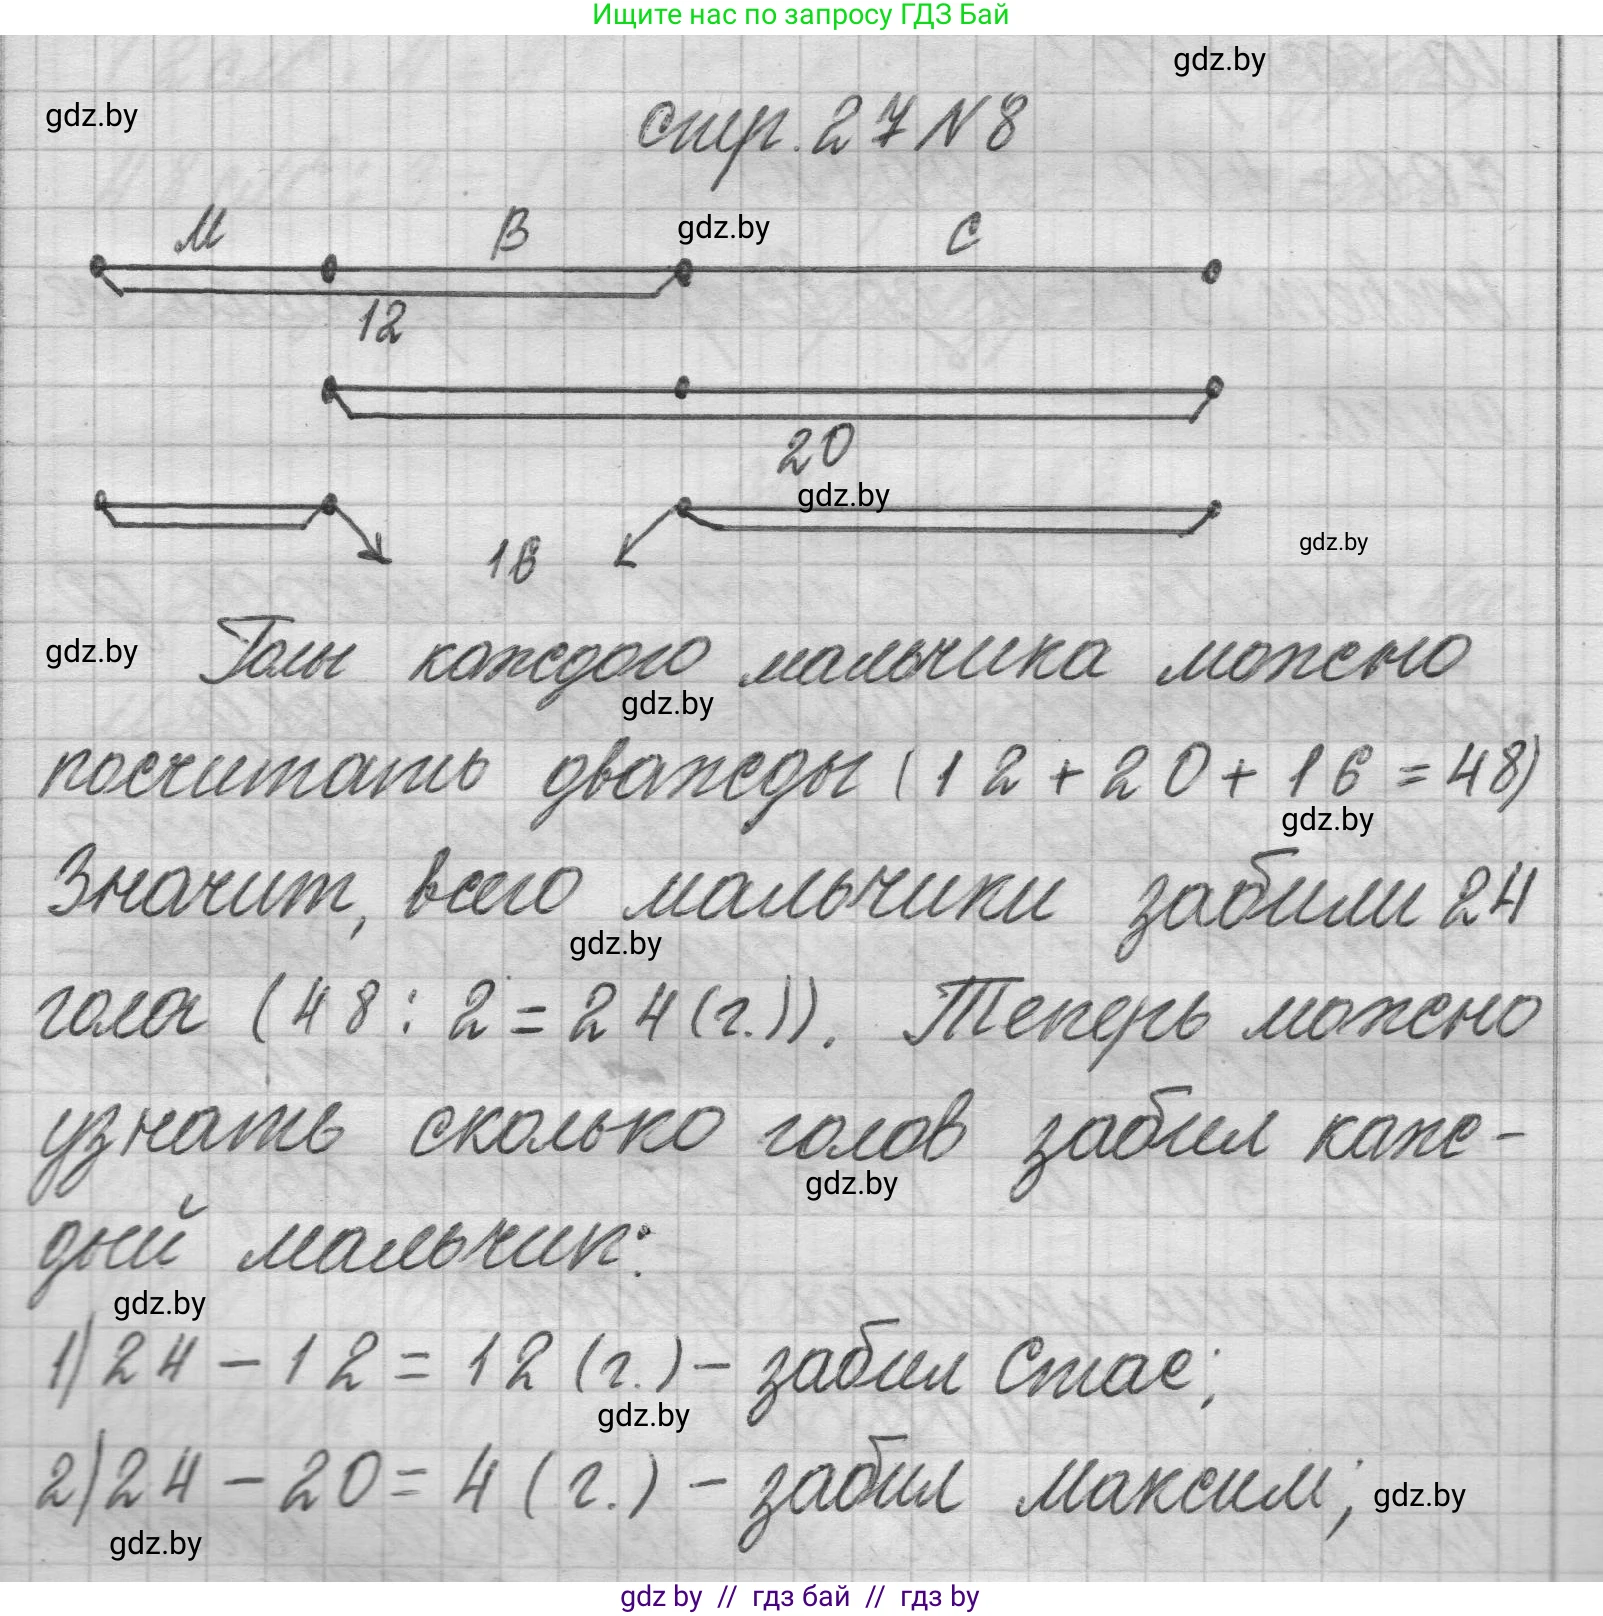 Ищите нас по запросу ГДЗ Бай
gdz.by
gdz.by
стр. 27 N 8
М В gdz.by С
12
20
gdz.by
16
gdz.by
gdz.by Голы каждого мальчика можно
gdz.by
посчитать дважды (12+20+16=48)
gdz.by
Значит, всего мальчики забили 24
gdz.by
гола (48:2=24(г.)). Теперь можно
узнать сколько голов забил каж-
gdz.by
дый мальчик:
gdz.by
1) 24 - 12 = 12 (г.) - забил Стас;
gdz.by
2) 24 - 20 = 4 (г.) - забил Максим;
gdz.by
gdz.by
gdz by // гдз бай // гдз by